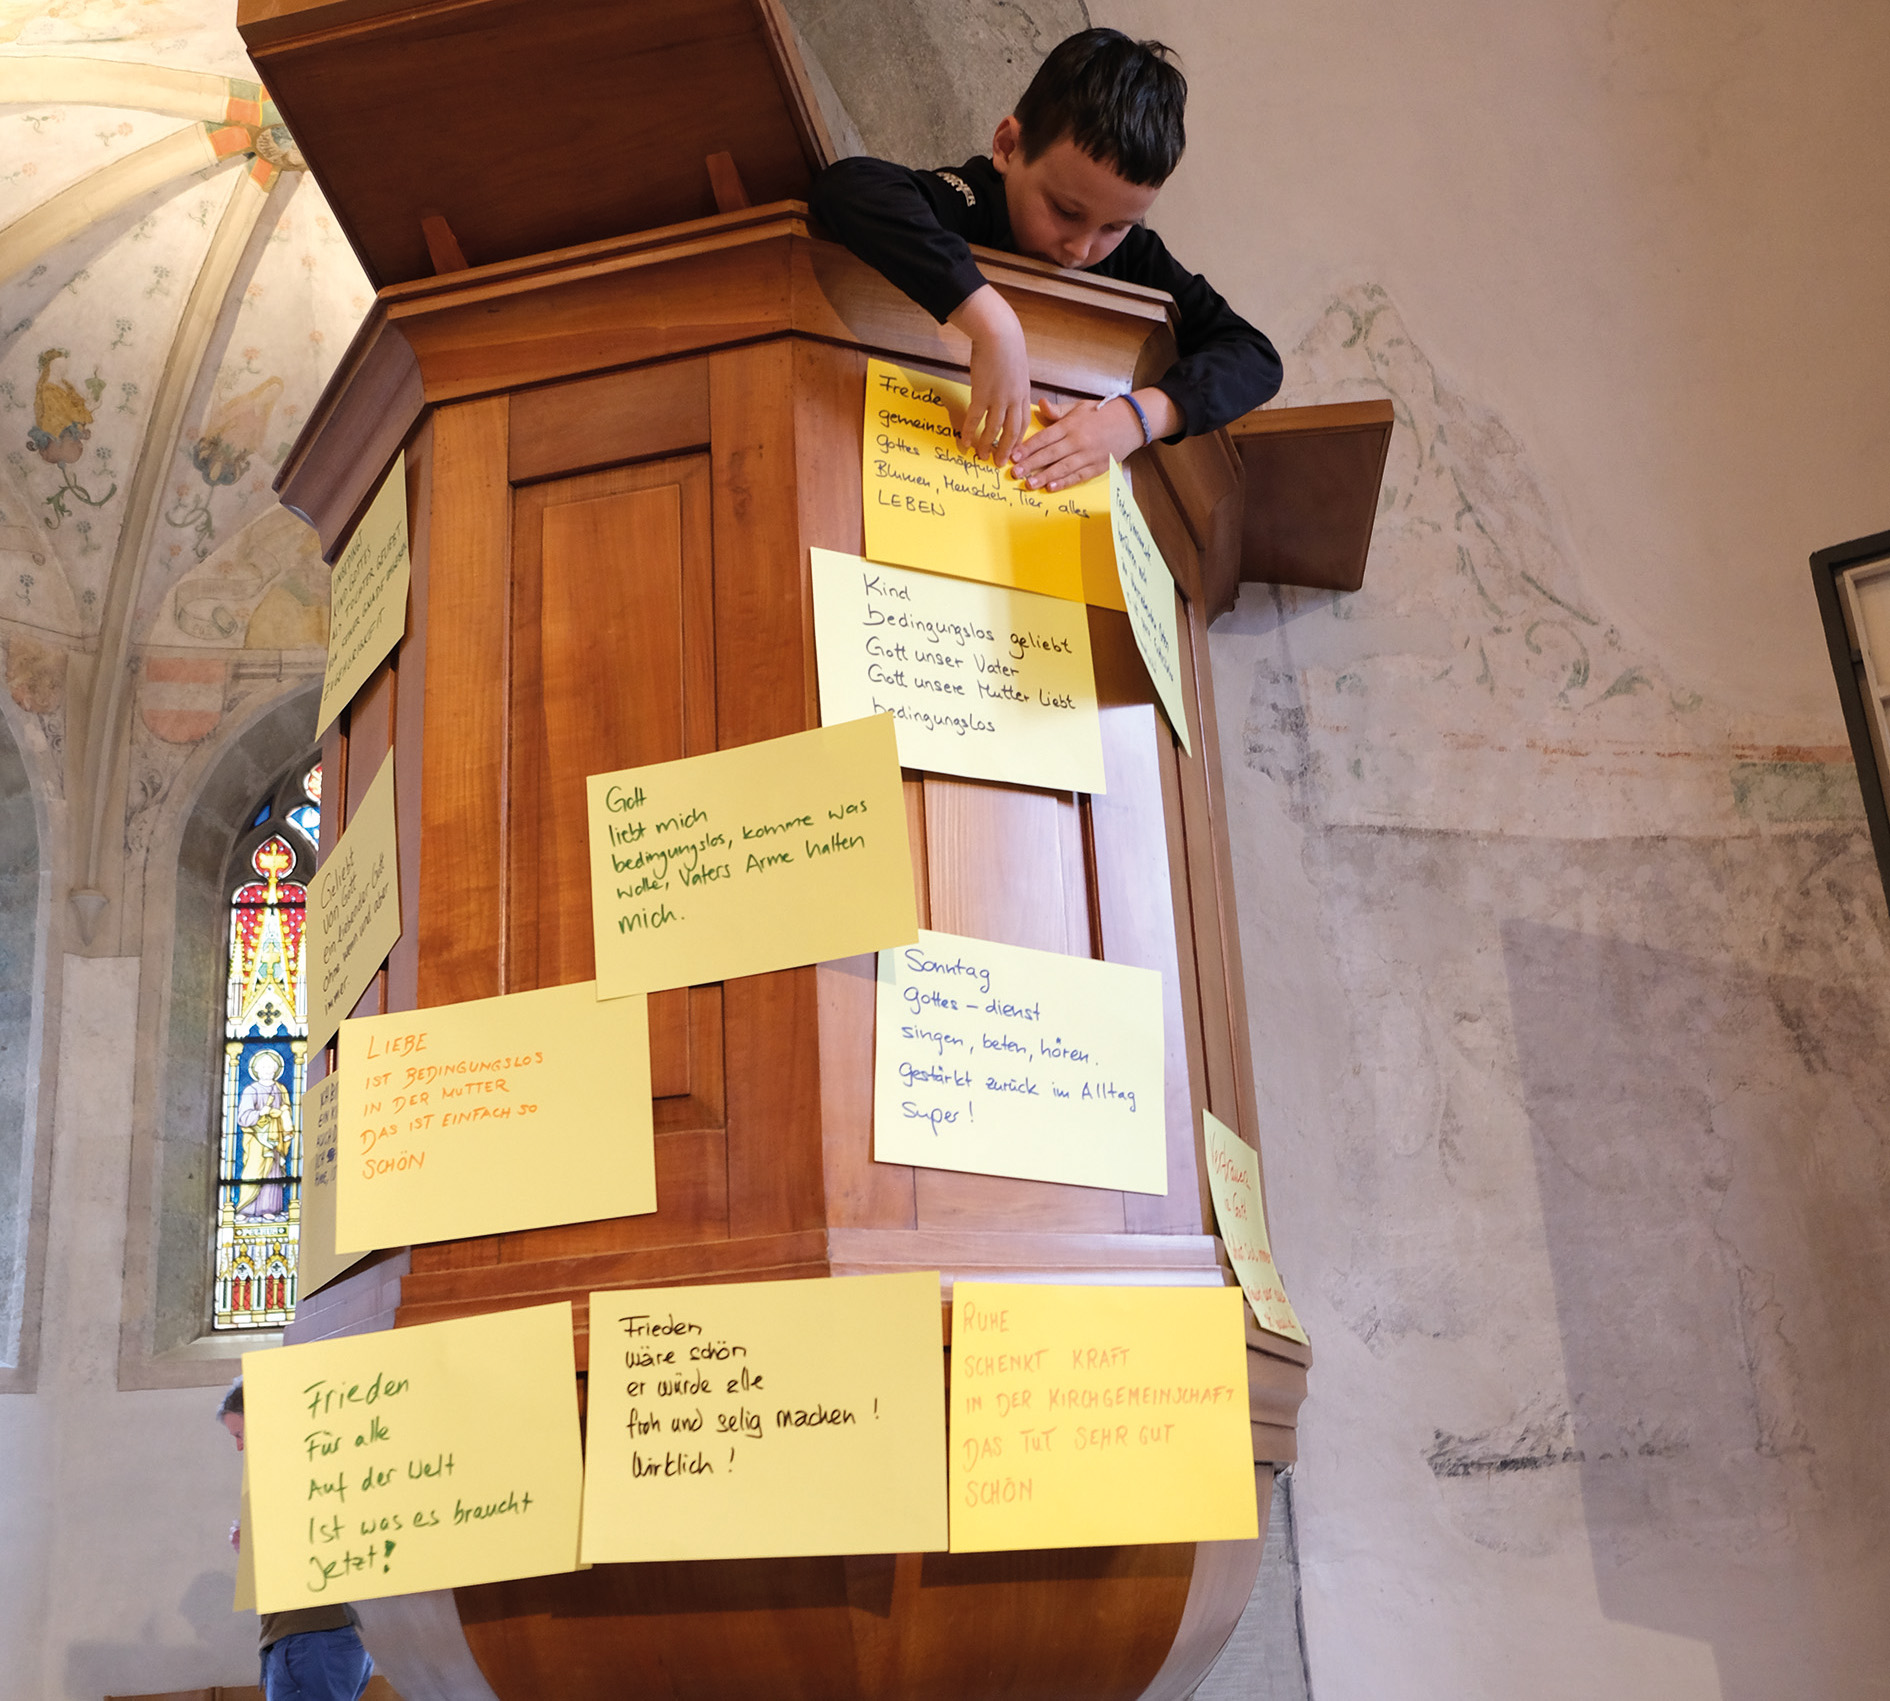 Freude
gemeinsam
Gottes Schöpfung
Blumen, Menschen, Tier, alles
LEBEN
Kind
bedingungslos geliebt
Gott unser Vater
Gott unsere Mutter liebt
bedingungslos
UNBEDINGT
KIND GOTTES
ALS TOCHTER GELIEBT
ZUGEHÖRIGKEIT
Gott
liebt mich
bedingungslos, komme was
wolle, Vaters Arme halten
mich.
Geliebt
von Gott
ein liebender Gott
ohne wenn und aber
immer.
Sonntag
Gottes – dienst
singen, beten, hören.
gestärkt zurück im Alltag
Super!
LIEBE
IST BEDINGUNGSLOS
IN DER MUTTER
DAS IST EINFACH SO
SCHÖN
Frieden
Für alle
Auf der Welt
Ist was es braucht
Jetzt!
Frieden
wäre schön
er würde alle
froh und selig machen!
Wirklich!
RUHE
SCHENKT KRAFT
IN DER KIRCHGEMEINSCHAFT
DAS TUT SEHR GUT
SCHÖN